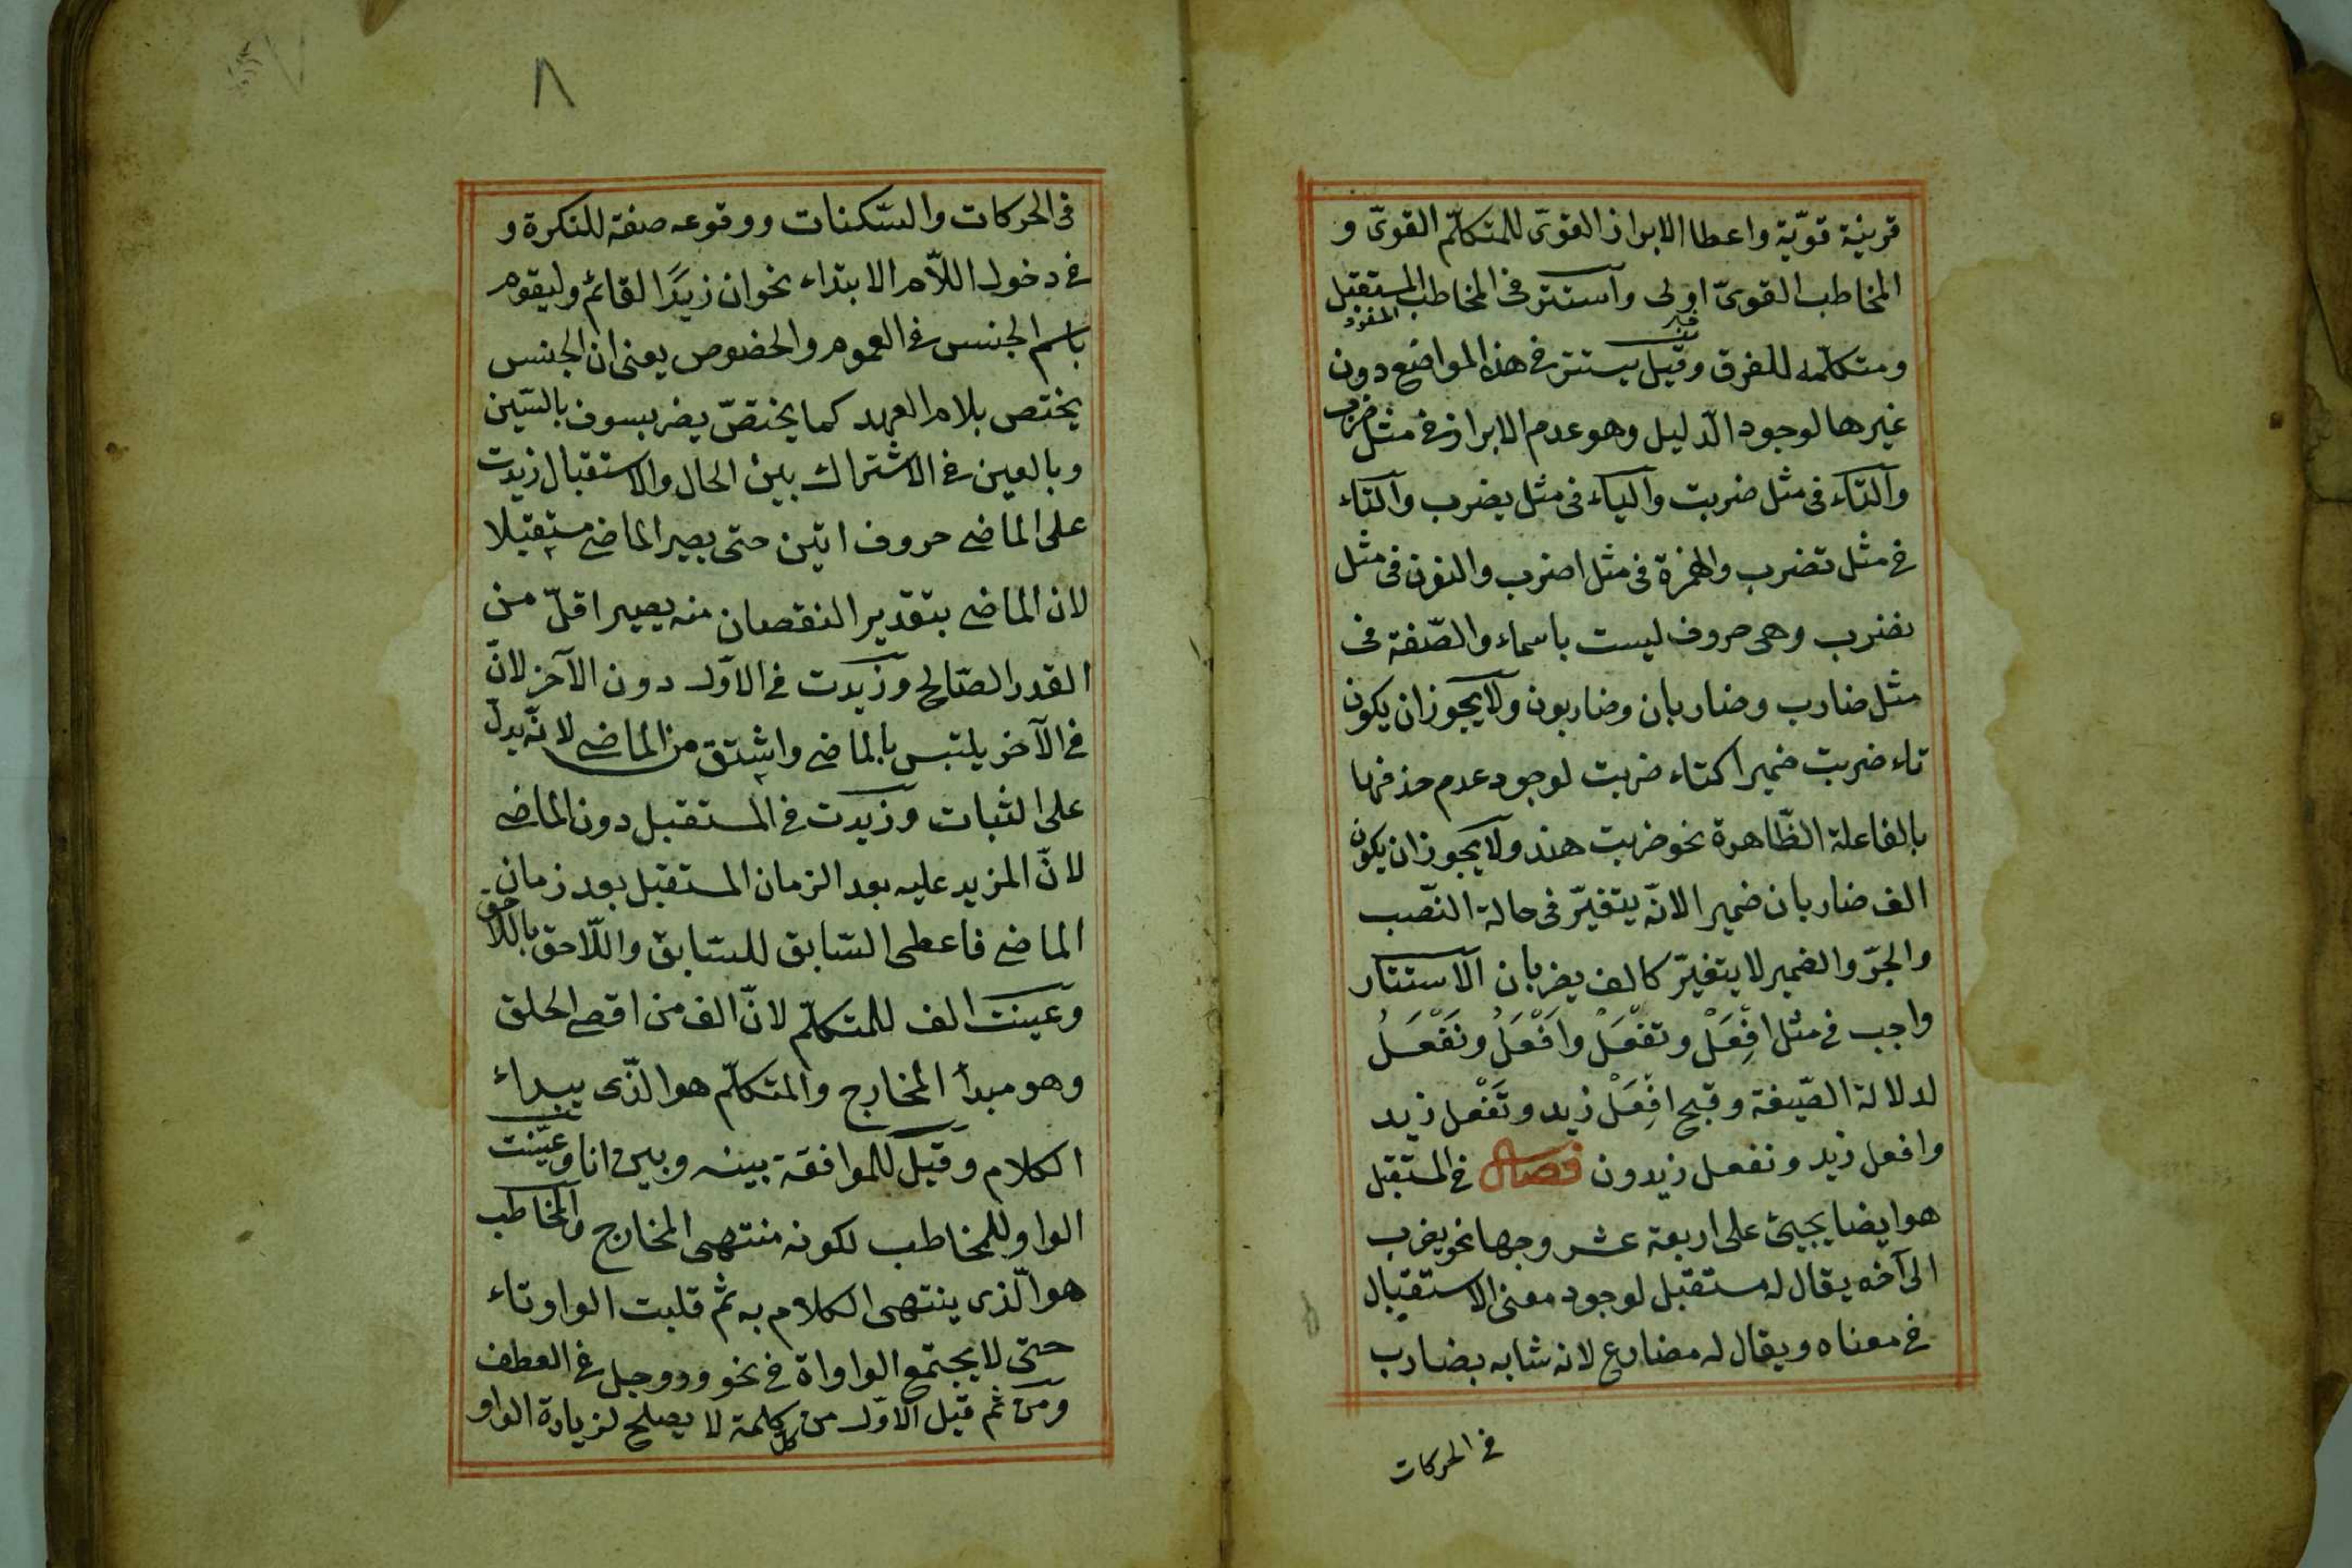 قرينة قويّة واعطا الابراز القوىّ للمتكلّم القوىّ و
المخاطب القوىّ اولى وآستتر فى المخاطب المستقبل
المفرد
ومتكلّمه للفرق وقيل يستتر فى هذه المواضع دون
غيرها لوجود الدّليل وهو عدم الابراز فى مثل ضرب
والتاء فى مثل ضربت والياء فى مثل يضرب والتاء
فى مثل تضرب والهمزة فى مثل اضرب والنون فى مثل
نضرب وهى حروف ليست باسماء والصّفة فى
مثل ضارب وضاربان وضاربون ولا يجوز ان يكون
تاء ضربت ضميرا كتاء ضربت لوجود عدم حذفها
بالفاعلة الظّاهرة نحو ضربت هند ولا يجوز ان يكون
الف ضاربان ضميرا لانّه يتغيّر فى حالة النّصب
والجرّ والضمير لا يتغيّر كالف يضربان الاستتار
واجب فى مثل افْعَلْ وتفْعَلْ وافْعَلُ ونَفْعَلُ
لدلالة الصّيغة وقبح افْعَلْ زيد وتَفْعل زيد
وافعل زيد ونفعل زيدون فصل فى المستقبل
هو ايضا يجيئ على اربعة عشر وجها نحو يضرب
الى آخره يقال له مستقبل لوجود معنى الاستقبال
فى معناه ويقال له مضارع لانه شابه بضارب
فى الحركات
٨
فى الحركات والسّكنات ووقوعه صفة للنكرة و
فى دخول اللّام الابتداء نحو ان زيدًا لقائم وليقوم
باسم الجنس فى العموم والخصوص يعنى ان الجنس
يختص بلام العهد كما يختصّ يضرب بسوف بالسّين
وبالعين فى الاشتراك بين الحال والاستقبال زيدت
على الماضى حروف اتين حتى يصير الماضى مستقبلا
لان الماضى بتقدير النقصان منه يصير اقلّ من
القدر الصّالح وزيدت فى الاوّل دون الآخر لانّ
فى الآخر يلتبس بالماضى واشتق من الماضى لانّه يدلّ
على الثبات وزيدت فى المستقبل دون الماضى
لانّ المزيد عليه بعد الزمان المستقبل بعد زمان
الماضى فاعطى السّابق للسّابق واللّاحق باللّاحق
وعينت الف للمتكلّم لانّ الف من اقصى الحلق
وهو مبدأ المخارج والمتكلّم هو الّذى يبداء
الكلام وقيل للموافقة بينه وبين انا وعيّنت
الواو للمخاطب لكونه منتهى المخارج والمخاطب
هو الّذى ينتهى الكلام به ثم قلبت الواو تاء
حتى لا يجتمع الواواة فى نحو ووجل فى العطف
ومن ثم قيل الاوّل من كل كلمة لا يصلح لزيادة الواو